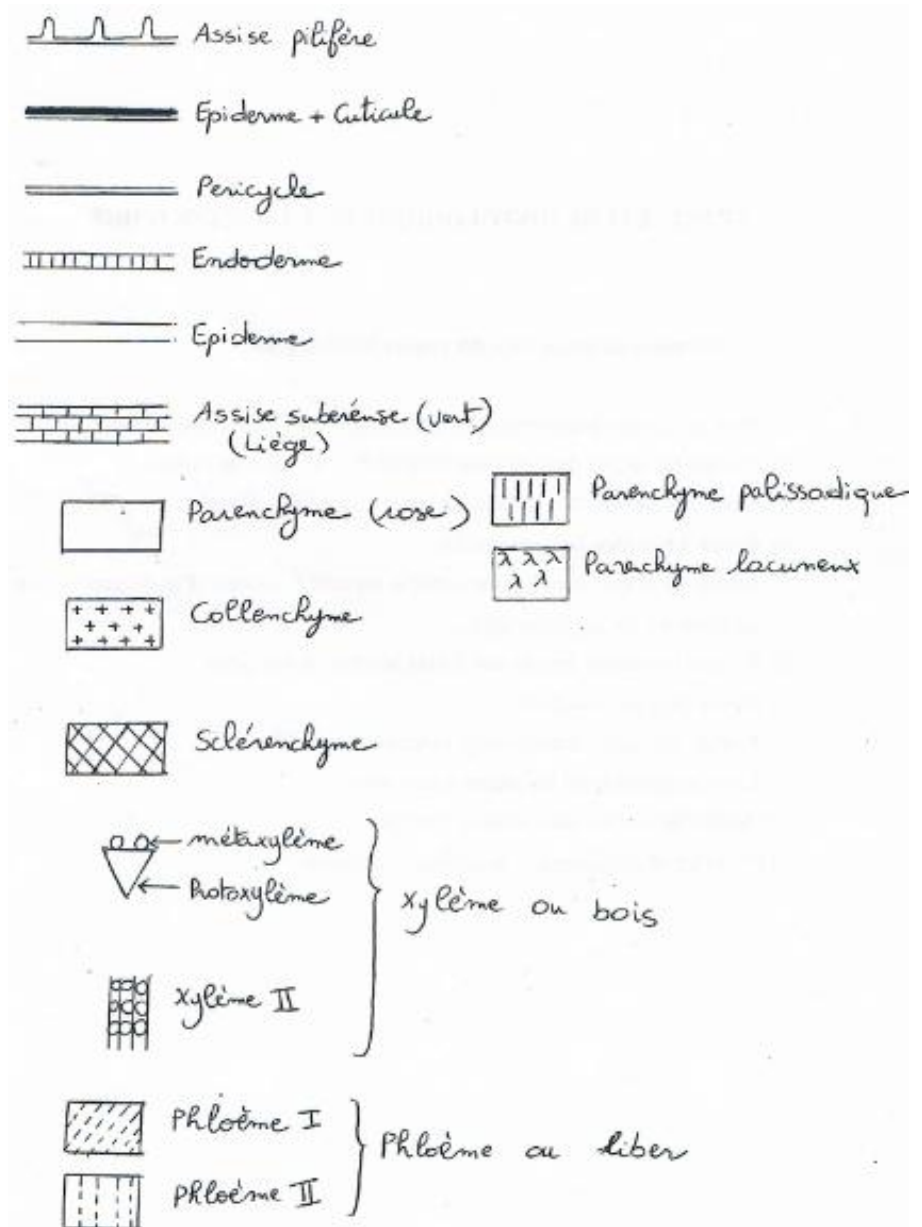 Assise pilifère
Epiderme + Cuticule
Pericycle
Endoderme
Epiderme
Assise subéreuse (vert)
(Liège)
Parenchyme (rose)
Parenchyme palissadique
Parenchyme lacuneux
Collenchyme
Sclérenchyme
métaxylème
Protoxylème
xylème ou bois
xylème II
Phloème I
Phloème ou liber
phloème II